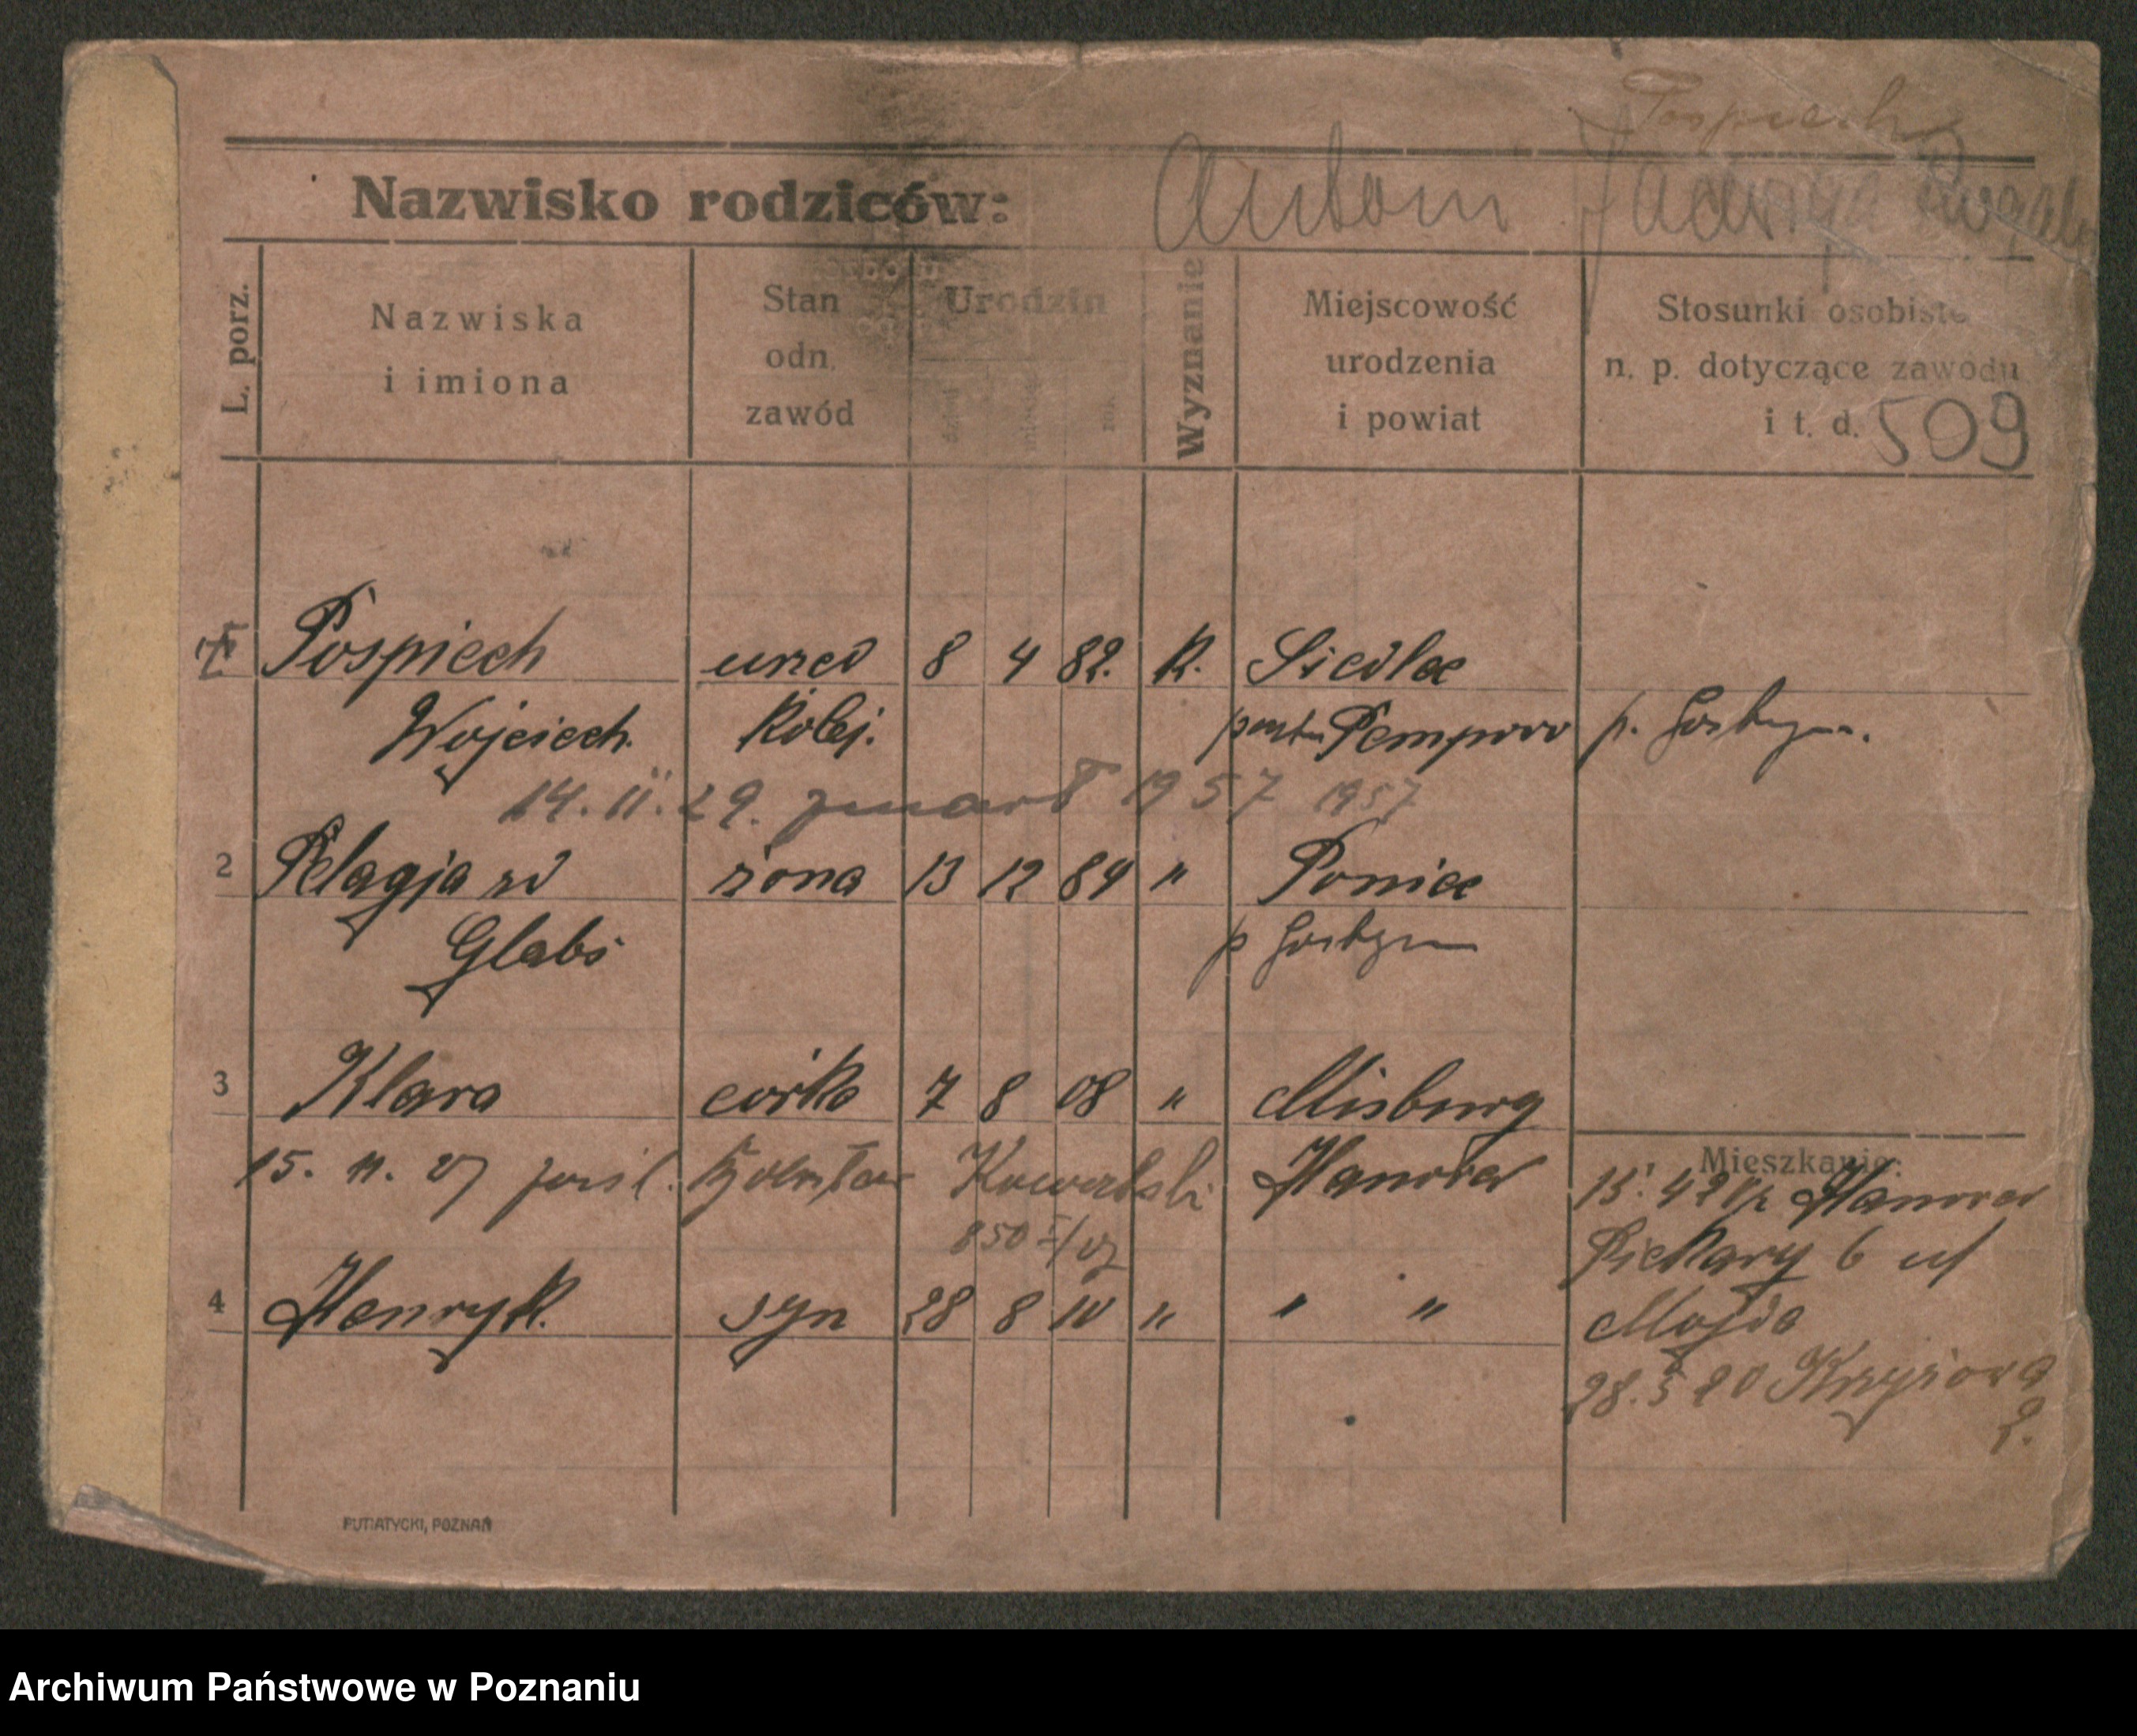 Pospiech
Nazwisko rodziców: Antoni Jadwiga
L. porz.
Nazwiska i imiona
Stan odn. zawód
Urodzin
dzień miesiąc rok
Wyznanie
Miejscowość urodzenia i powiat
Stosunki osobiste n. p. dotyczące zawodu i t. d. 509
1 Pospiech urzed 8 4 82. K. Siedlec
Wojciech. Kolej. Pempowo p. Gostyn.
14. 11. 29. zmarł 1957 1957
2 Pelagja zd żona 13 12 84 " Poniec
Glabs p Gostyn
3 Klara córka 7 8 08 " Misburg
Mieszkanie:
15. 11. 27 Kowalski Hanower 15. 4 20 Hanower
850 Piekary 6 u/
4 Henryk. syn 28 8 10 " " " Majda
28. 5 20 Krzyżowa
2.
PUTIATYCKI, POZNAŃ
Archiwum Państwowe w Poznaniu